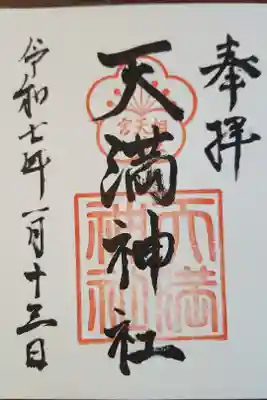 奉拝
天満神社
天満
神社
令和七年一月十三日